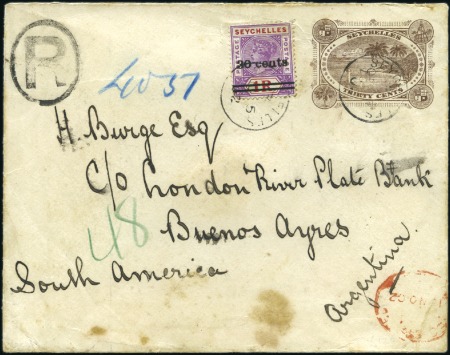 SEYCHELLES
SEYCHELLES
POSTAGE
POSTAGE
20 cents
1R
THIRTY CENTS
R
4057
H. Burge Esq
C/o London River Plate Bank
48
Buenos Ayres
South America
Argentina